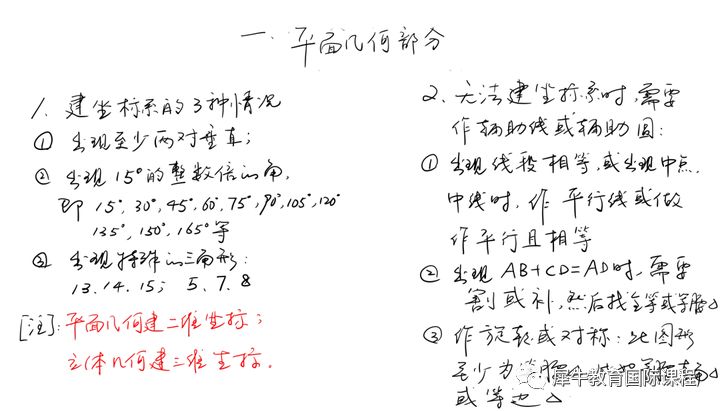 一、平面几何部分
1、建坐标系的3种情况
① 出现至少两对垂直；
② 出现15°的整数倍的角，
即 15°, 30°, 45°, 60°, 75°, 90°, 105°, 120°
135°, 150°, 165° 等
③ 出现特殊的三角形：
13、14、15； 5、7、8
[注]：平面几何建二维坐标；
立体几何建三维坐标。
2、无法建坐标系时，需要
作辅助线或辅助圆：
① 出现线段相等，或出现中点、
中线时，作 平行线或做
作平行且相等
② 出现 AB+CD=AD时，需要
割或补，然后找全等或等腰△
③ 作旋转或对称：此图形
至少为等腰
或等边△
犀牛教育国际课程